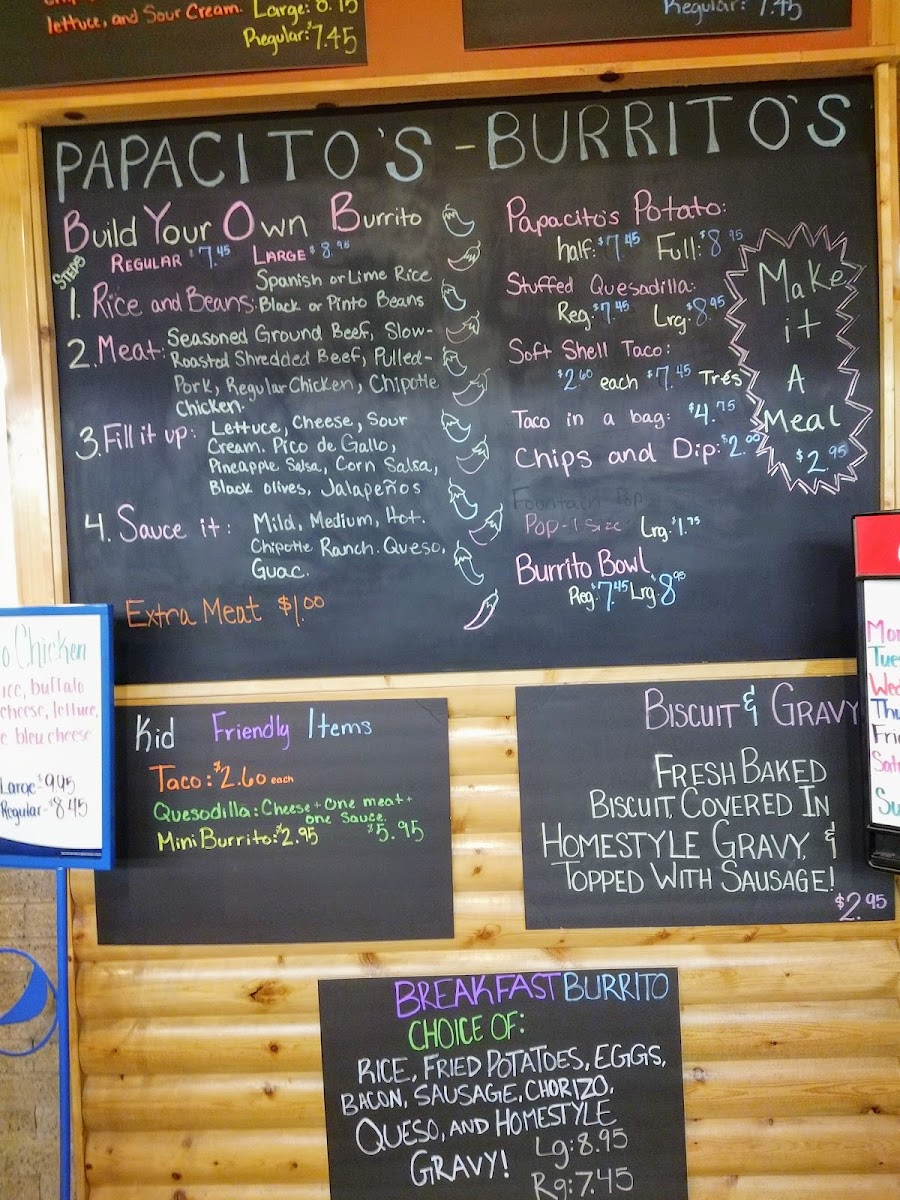 lettuce, and Sour Cream. Large: 8.
Regular: $7.45
Regular: 7.45
PAPACITO'S - BURRITO'S
Build Your Own Burrito
REGULAR $7.45 LARGE $8.95
STEPS
1. Rice and Beans: Spanish or Lime Rice
Black or Pinto Beans
2. Meat: Seasoned Ground Beef, Slow-
Roasted Shredded Beef, Pulled-
Pork, Regular Chicken, Chipotle
Chicken.
3. Fill it up: Lettuce, Cheese, Sour
Cream. Pico de Gallo,
Pineapple Salsa, Corn Salsa,
Black olives, Jalapeños
4. Sauce it: Mild, Medium, Hot.
Chipotle Ranch. Queso,
Guac.
Extra Meat $1.00
Papacito's Potato:
half: $7.45 Full: $8.95
Stuffed Quesadilla:
Reg: $7.45 Lrg: $8.95
Soft Shell Taco:
$2.60 each $7.45 Trés
Taco in a bag: $4.75
Chips and Dip: $2.00
Fountain Pop
Pop-1 Size Lrg: $1.75
Burrito Bowl
Reg: $7.45 Lrg: $8.95
Make
it
A
Meal
$2.95
o Chicken
ice, buffalo
cheese, lettuce,
e bleu cheese
Large - $9.45
Regular - $8.45
Kid Friendly Items
Taco: $2.60 each
Quesodilla: Cheese + One meat +
one Sauce.
$5.95
Mini Burrito: $2.95
BISCUIT & GRAVY
FRESH BAKED
BISCUIT, COVERED IN
HOMESTYLE GRAVY, &
TOPPED WITH SAUSAGE!
$2.95
Mon
Tues
Wed
Thu
Frid
Satu
Su
BREAKFAST BURRITO
CHOICE OF:
RICE, FRIED POTATOES, EGGS,
BACON, SAUSAGE, CHORIZO,
QUESO, AND HOMESTYLE
GRAVY! Lg: 8.95
Rg: 7.45